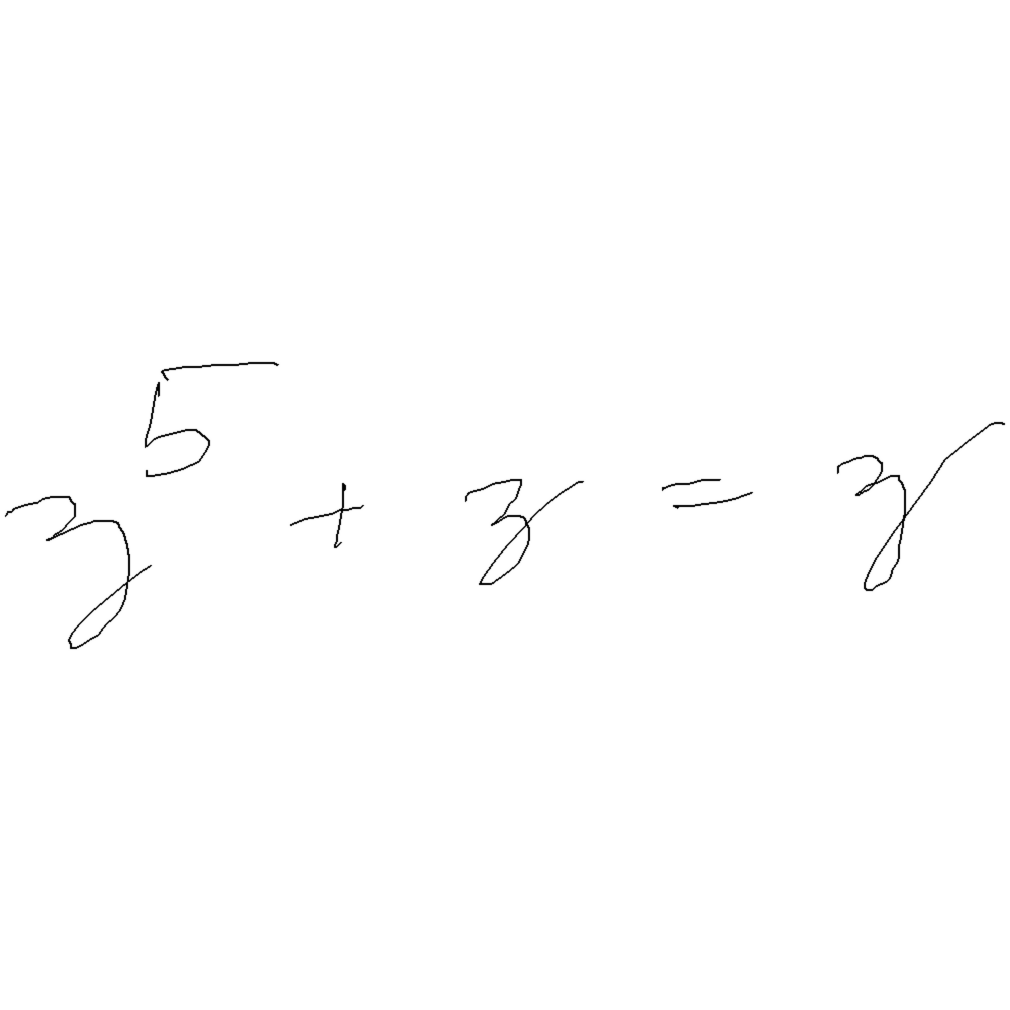 z⁵ + z = z